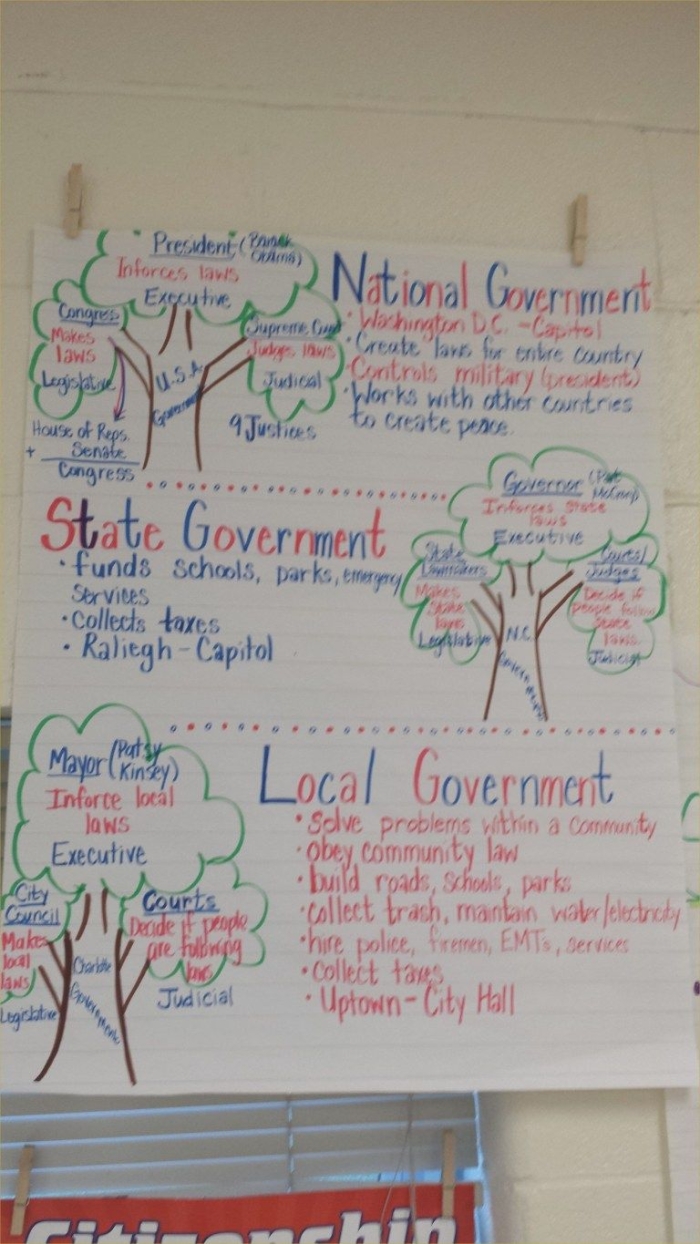 President (Barack Obama)
Inforces laws
Executive
Congress
Makes
laws
Legislative
House of Reps.
+ Senate
Congress
U.S.A.
Government
Supreme Court
Judges laws
Judical
9 Justices
National Government
• Washington D.C. - Capitol
• Create laws for entire country
• Controls military (president)
• Works with other countries
to create peace.
State Government
• funds schools, parks, emergency
services
• Collects taxes
• Raliegh - Capitol
Governor (Pat McCrory)
Inforces State
laws
Executive
State
Lawmakers
Makes
State
laws
Legislative
N.C.
Government
Courts/
Judges
Decide if
people follow
state
laws.
Judicial
Mayor (Patsy Kinsey)
Inforce local
laws
Executive
City
Council
Makes
local
laws
Legislative
Charlotte
Government
Courts
Decide if people
are following
laws
Judicial
Local Government
• Solve problems within a community
• obey community law
• build roads, schools, parks
• collect trash, maintain water/electricity
• hire police, firemen, EMTs, services
• Collect taxes
• Uptown - City Hall
Citizenship